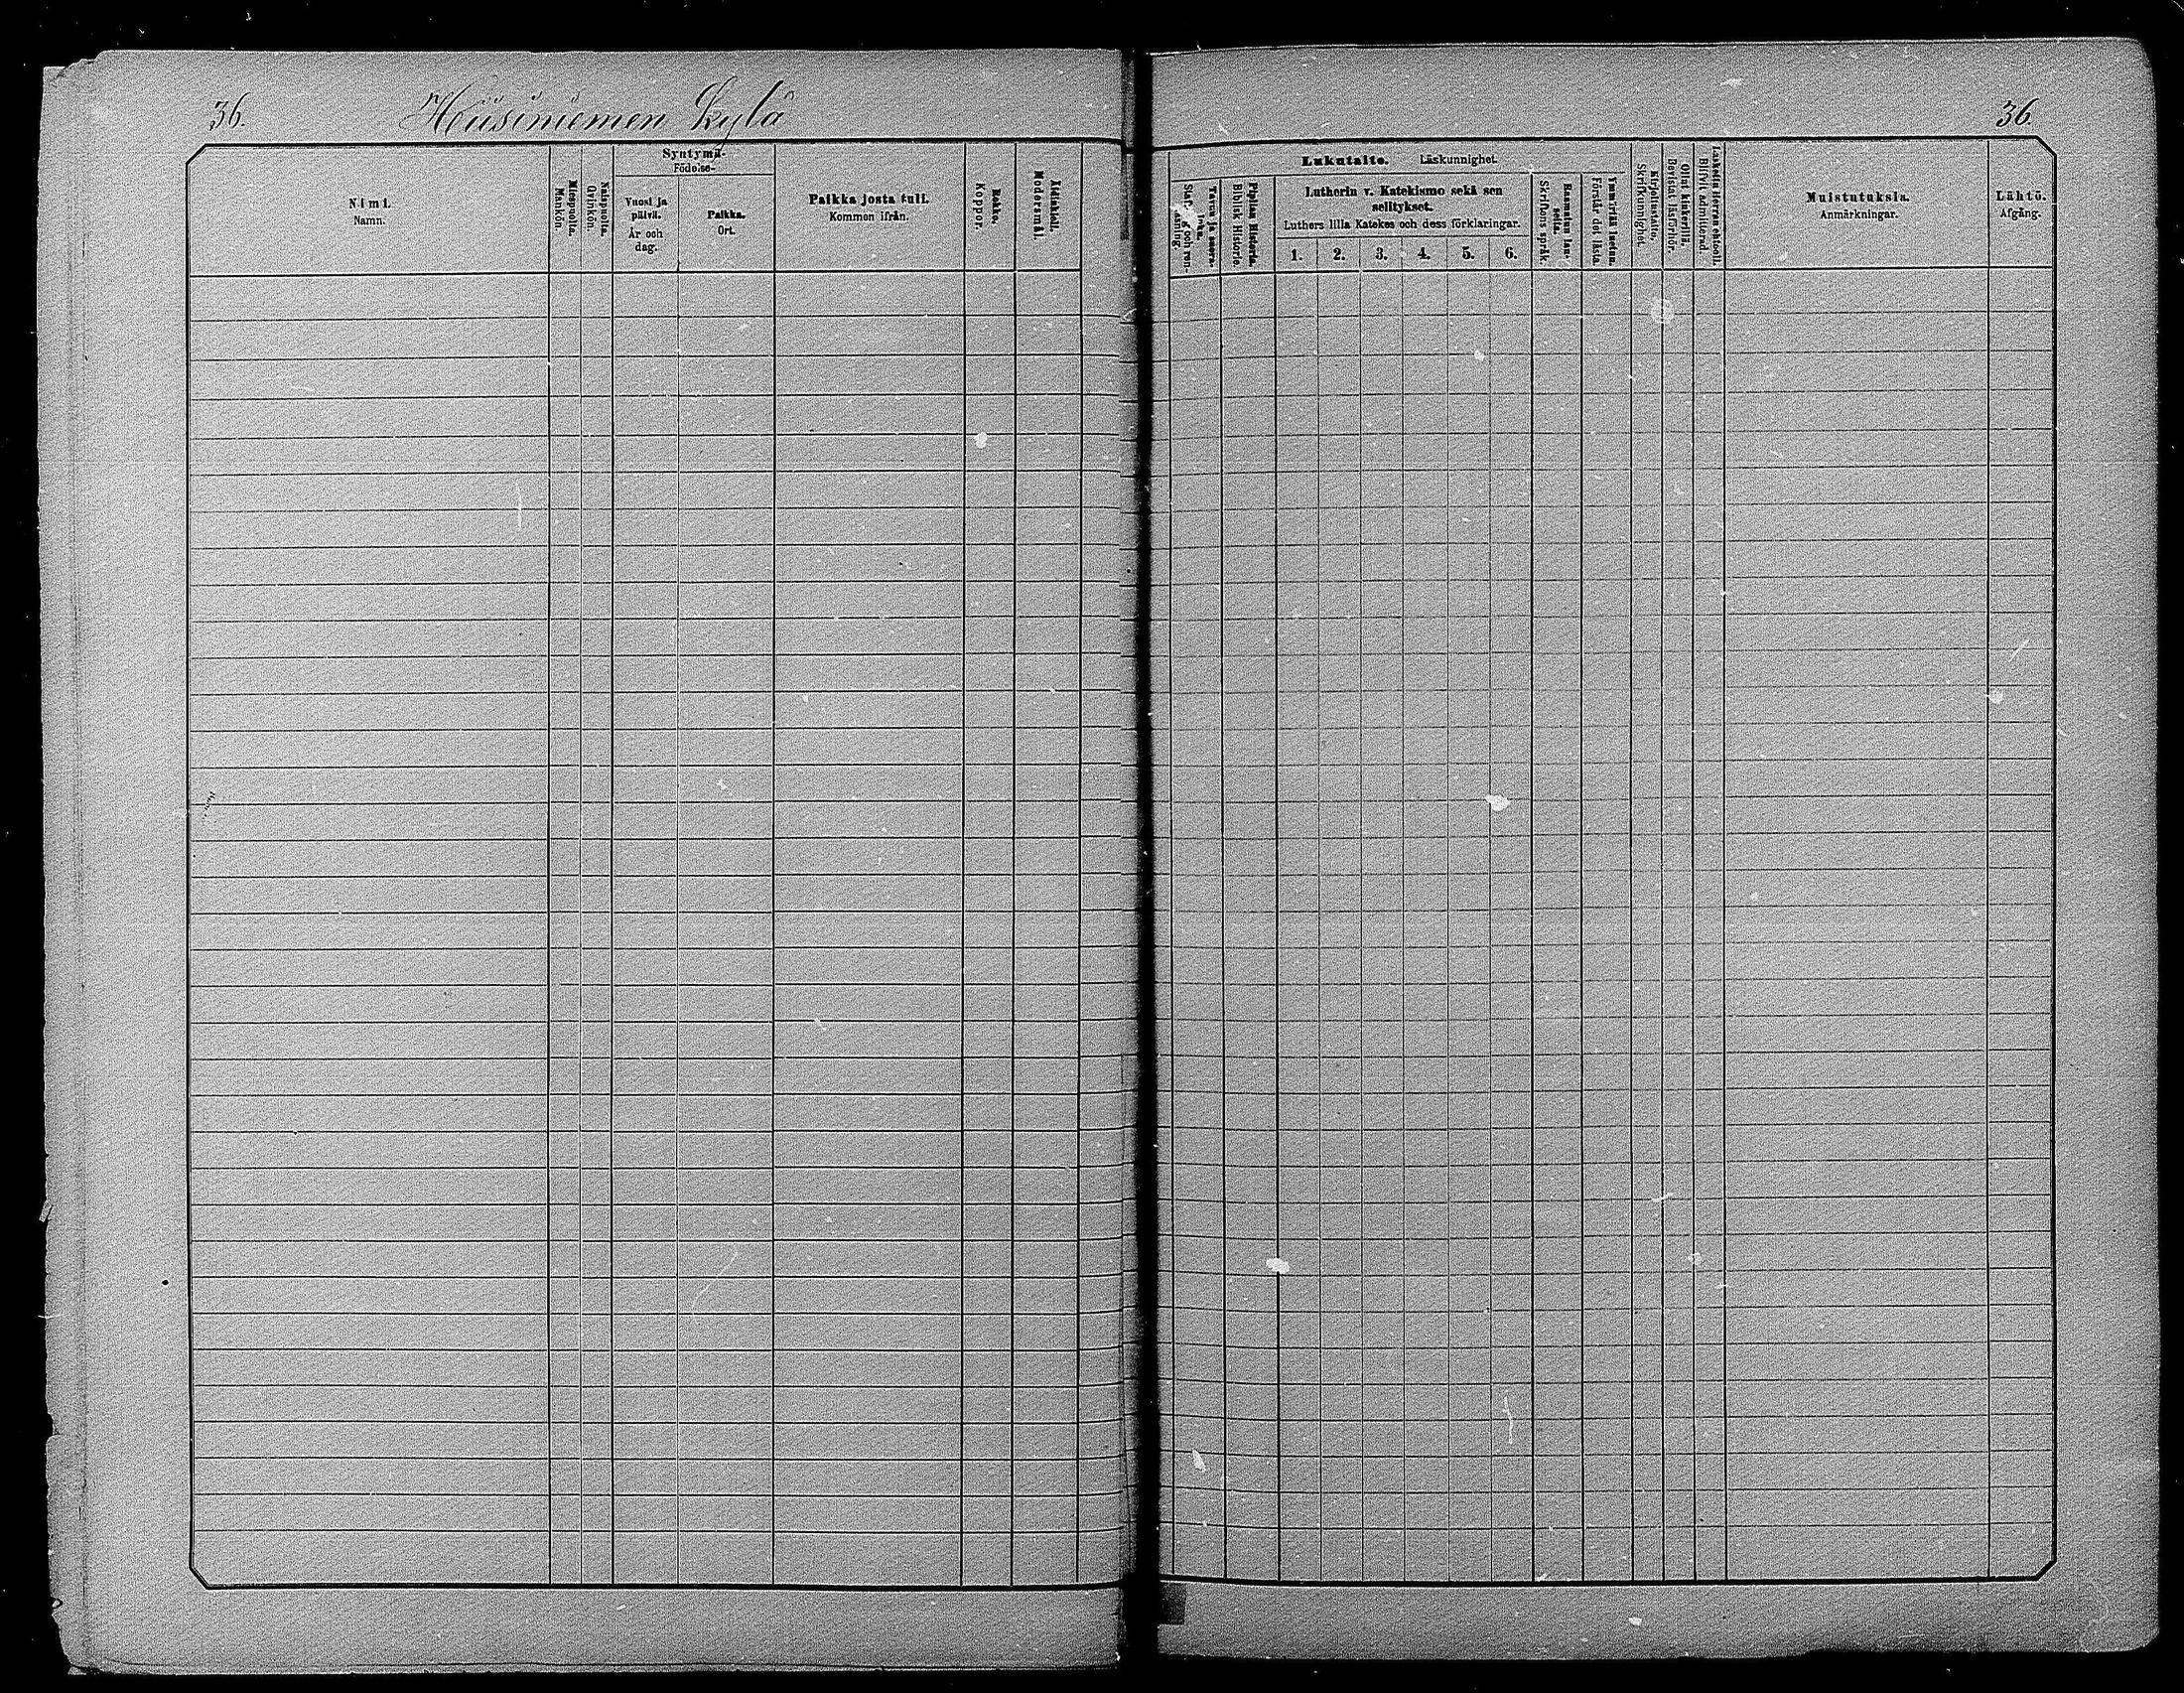 36. Hiisiniemen Kylä
Nimi.
Namn.
Miespuolia.
Mankön.
Naispuolia.
Qvinkön.
Syntymä-
Födelse-
Vuosi ja
päivä.
År och
dag.
Paikka.
Ort.
Paikka josta tuli.
Kommen ifrån.
Rokko.
Koppor.
Äidinkieli.
Modersmål.
36
Lukutaito. Läskunnighet.
Tavua ja suora-
luku.
och ren-
läsning.
Piplian Historia.
Biblisk Historie.
Lutherin v. Katekismo sekä sen
selitykset.
Luthers lilla Katekes och dess förklaringar.
1. 2. 3. 4. 5. 6.
Raamatun lau-
seita.
Skriftens språk.
Ymmärtää luetun.
Förstår det lästa.
Kirjoitustaito.
Skrifkunnighet.
Ollut kinkerillä.
Bevistat läsförhör.
Laskettu Herran ehtool.
Blifvit admitterad.
Muistutuksia.
Anmärkningar.
Lähtö.
Afgång.